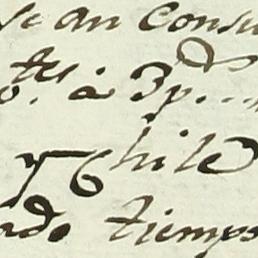 se an consu
tes. à 3p...
y Chile
ado tiemps